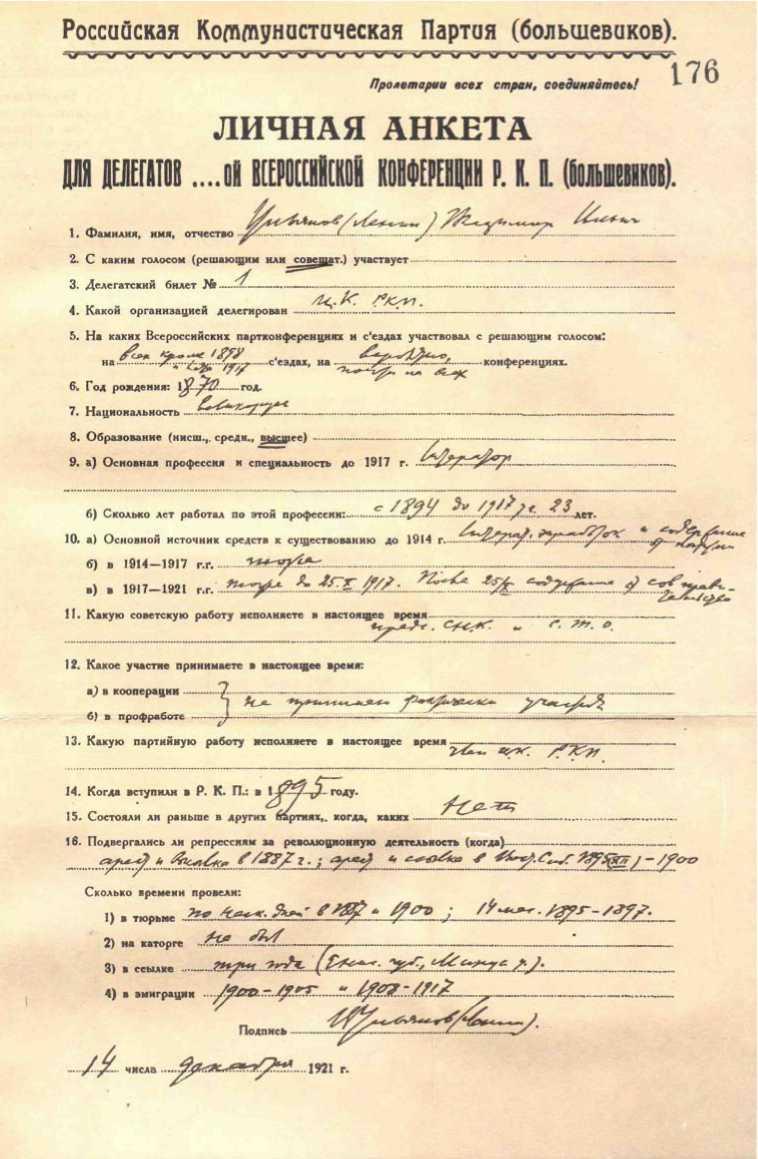 Российская Коммунистическая Партия (большевиков).
Пролетарии всех стран, соединяйтесь!
176
ЛИЧНАЯ АНКЕТА
ДЛЯ ДЕЛЕГАТОВ ....ой ВСЕРОССИЙСКОЙ КОНФЕРЕНЦИИ Р. К. П. (большевиков).
1. Фамилия, имя, отчество Ульянов (Ленин) Владимир Ильич
2. С каким голосом (решающим или совещат.) участвует
3. Делегатский билет № 1
4. Какой организацией делегирован Ц.К. Р.К.П.
5. На каких Всероссийских партконференциях и с'ездах участвовал с решающим голосом:
на всех кроме 1898 с'ездах, на вероятно, конференциях.
и 1917 почти на всех
6. Год рождения: 1870 год.
7. Национальность великорусс
8. Образование (нисш., средн., высшее)
9. а) Основная профессия и специальность до 1917 г. литератор
б) Сколько лет работал по этой профессии: с 1894 до 1917, т.е. 23 лет.
10. а) Основной источник средств к существованию до 1914 г. литерат. заработок и содержание
от партии
б) в 1914—1917 г.г. тоже
в) в 1917—1921 г.г. тоже до 25.X 1917. После 25/X содержание от сов. прави-
тельства
11. Какую советскую работу исполняете в настоящее время
предс. СНК. и С.Т.О.
12. Какое участие принимаете в настоящее время:
а) в кооперации
не принимаю фактически участия
б) в профработе
13. Какую партийную работу исполняете в настоящее время
член ЦК. Р.К.П.
14. Когда вступили в Р. К. П.: в 1895 году.
15. Состояли ли раньше в других партиях, когда, каких Нет
16. Подвергались ли репрессиям за революционную деятельность (когда)
арест и высылка в 1887 г.; арест и ссылка в Вост. Сиб. 1895(XII)-1900
Сколько времени провели:
1) в тюрьме по неск. дней в 1887 и 1900; 14 мес. 1895-1897.
2) на каторге не был
3) в ссылке три года (Енис. губ., Минус. у.).
4) в эмиграции 1900-1905 и 1908-1917
Подпись В Ульянов (Ленин).
14 числа декабря 1921 г.